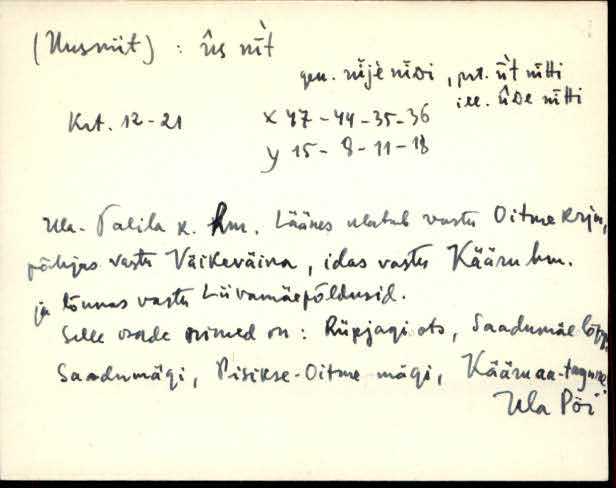 (Uusniit) : ūs nīt̀
gen. nījè nīdi, prt. ūt̀ nītti
ill. ūde nītti
Krt. 12-21 x 47-44-35-36
y 15-8-11-18
Ula-Palila k. hm. Läänes ulatub vastu Oitme karja,
põhjas vastu Väikeväina, idas vastu Kääru hm.
ja lõunas vastu Liivamäepõldusid.
Selle osade nimed on: Rüpjagi ots, Saadumäe lõpp,
Saadumägi, Pisikse-Oitme mägi, Käärumaa-tagune
Ula Pöi